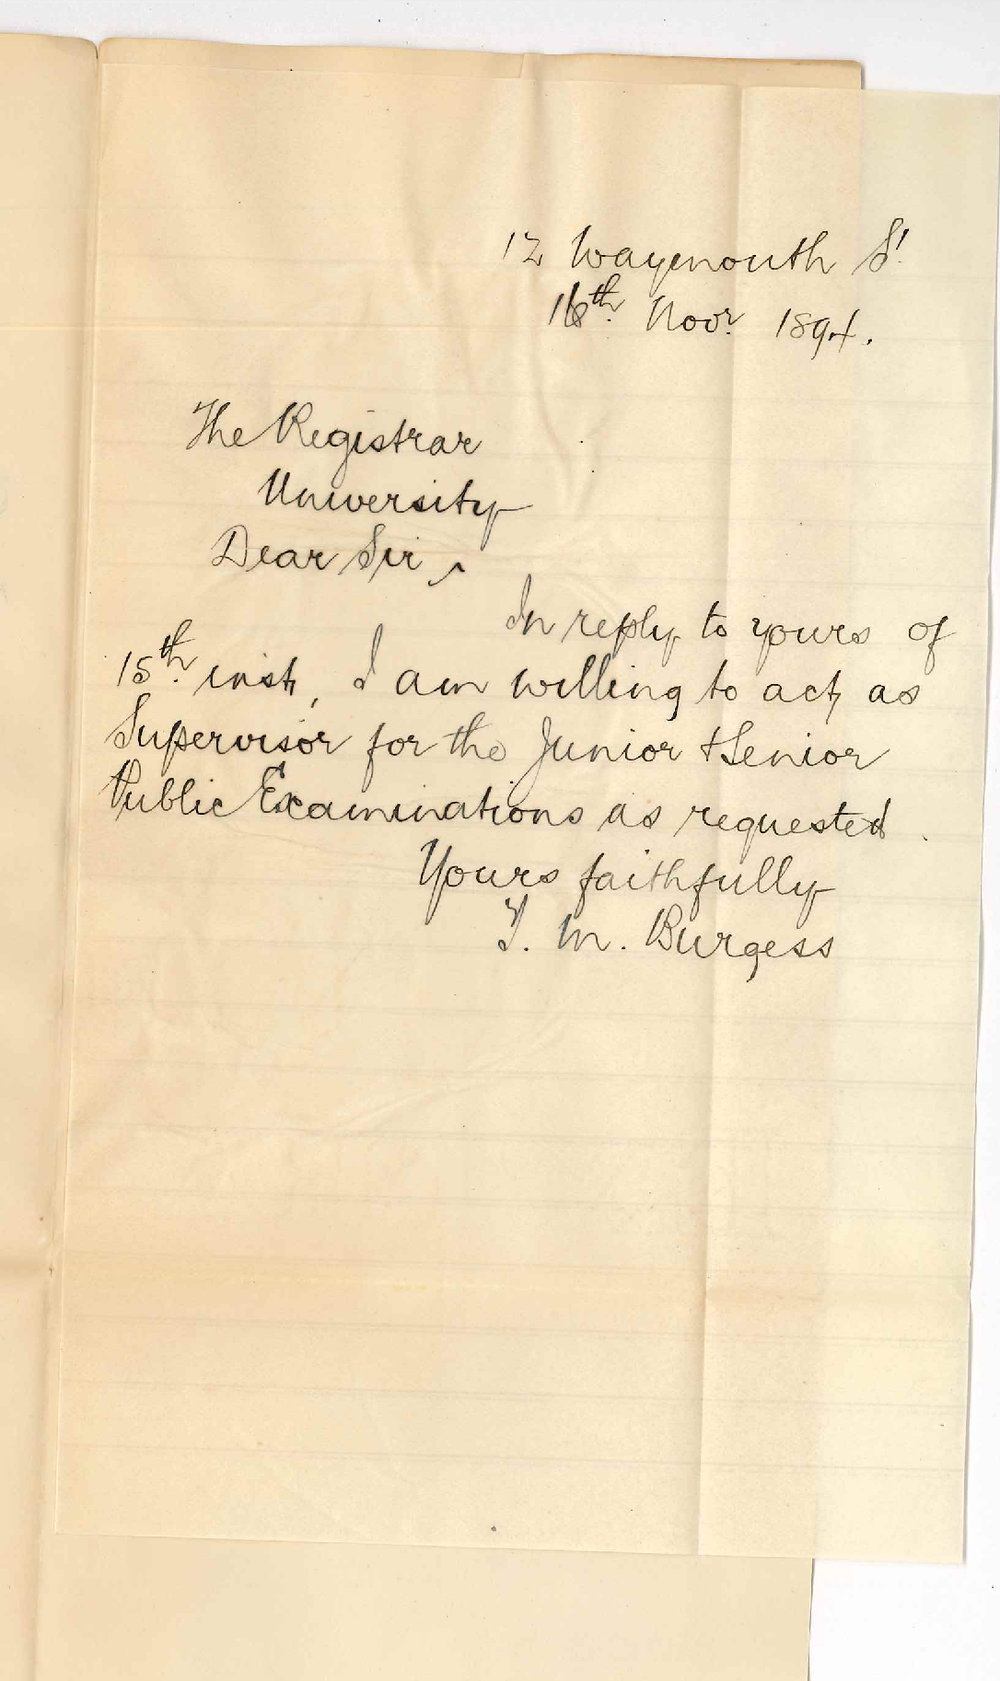 12 Waymouth St
16th Novr 1894.
The Registrar
University
Dear Sir,
In reply to yours of
15th inst, I am willing to act as
Supervisor for the Junior & Senior
Public Examinations as requested.
Yours faithfully
T. M. Burgess